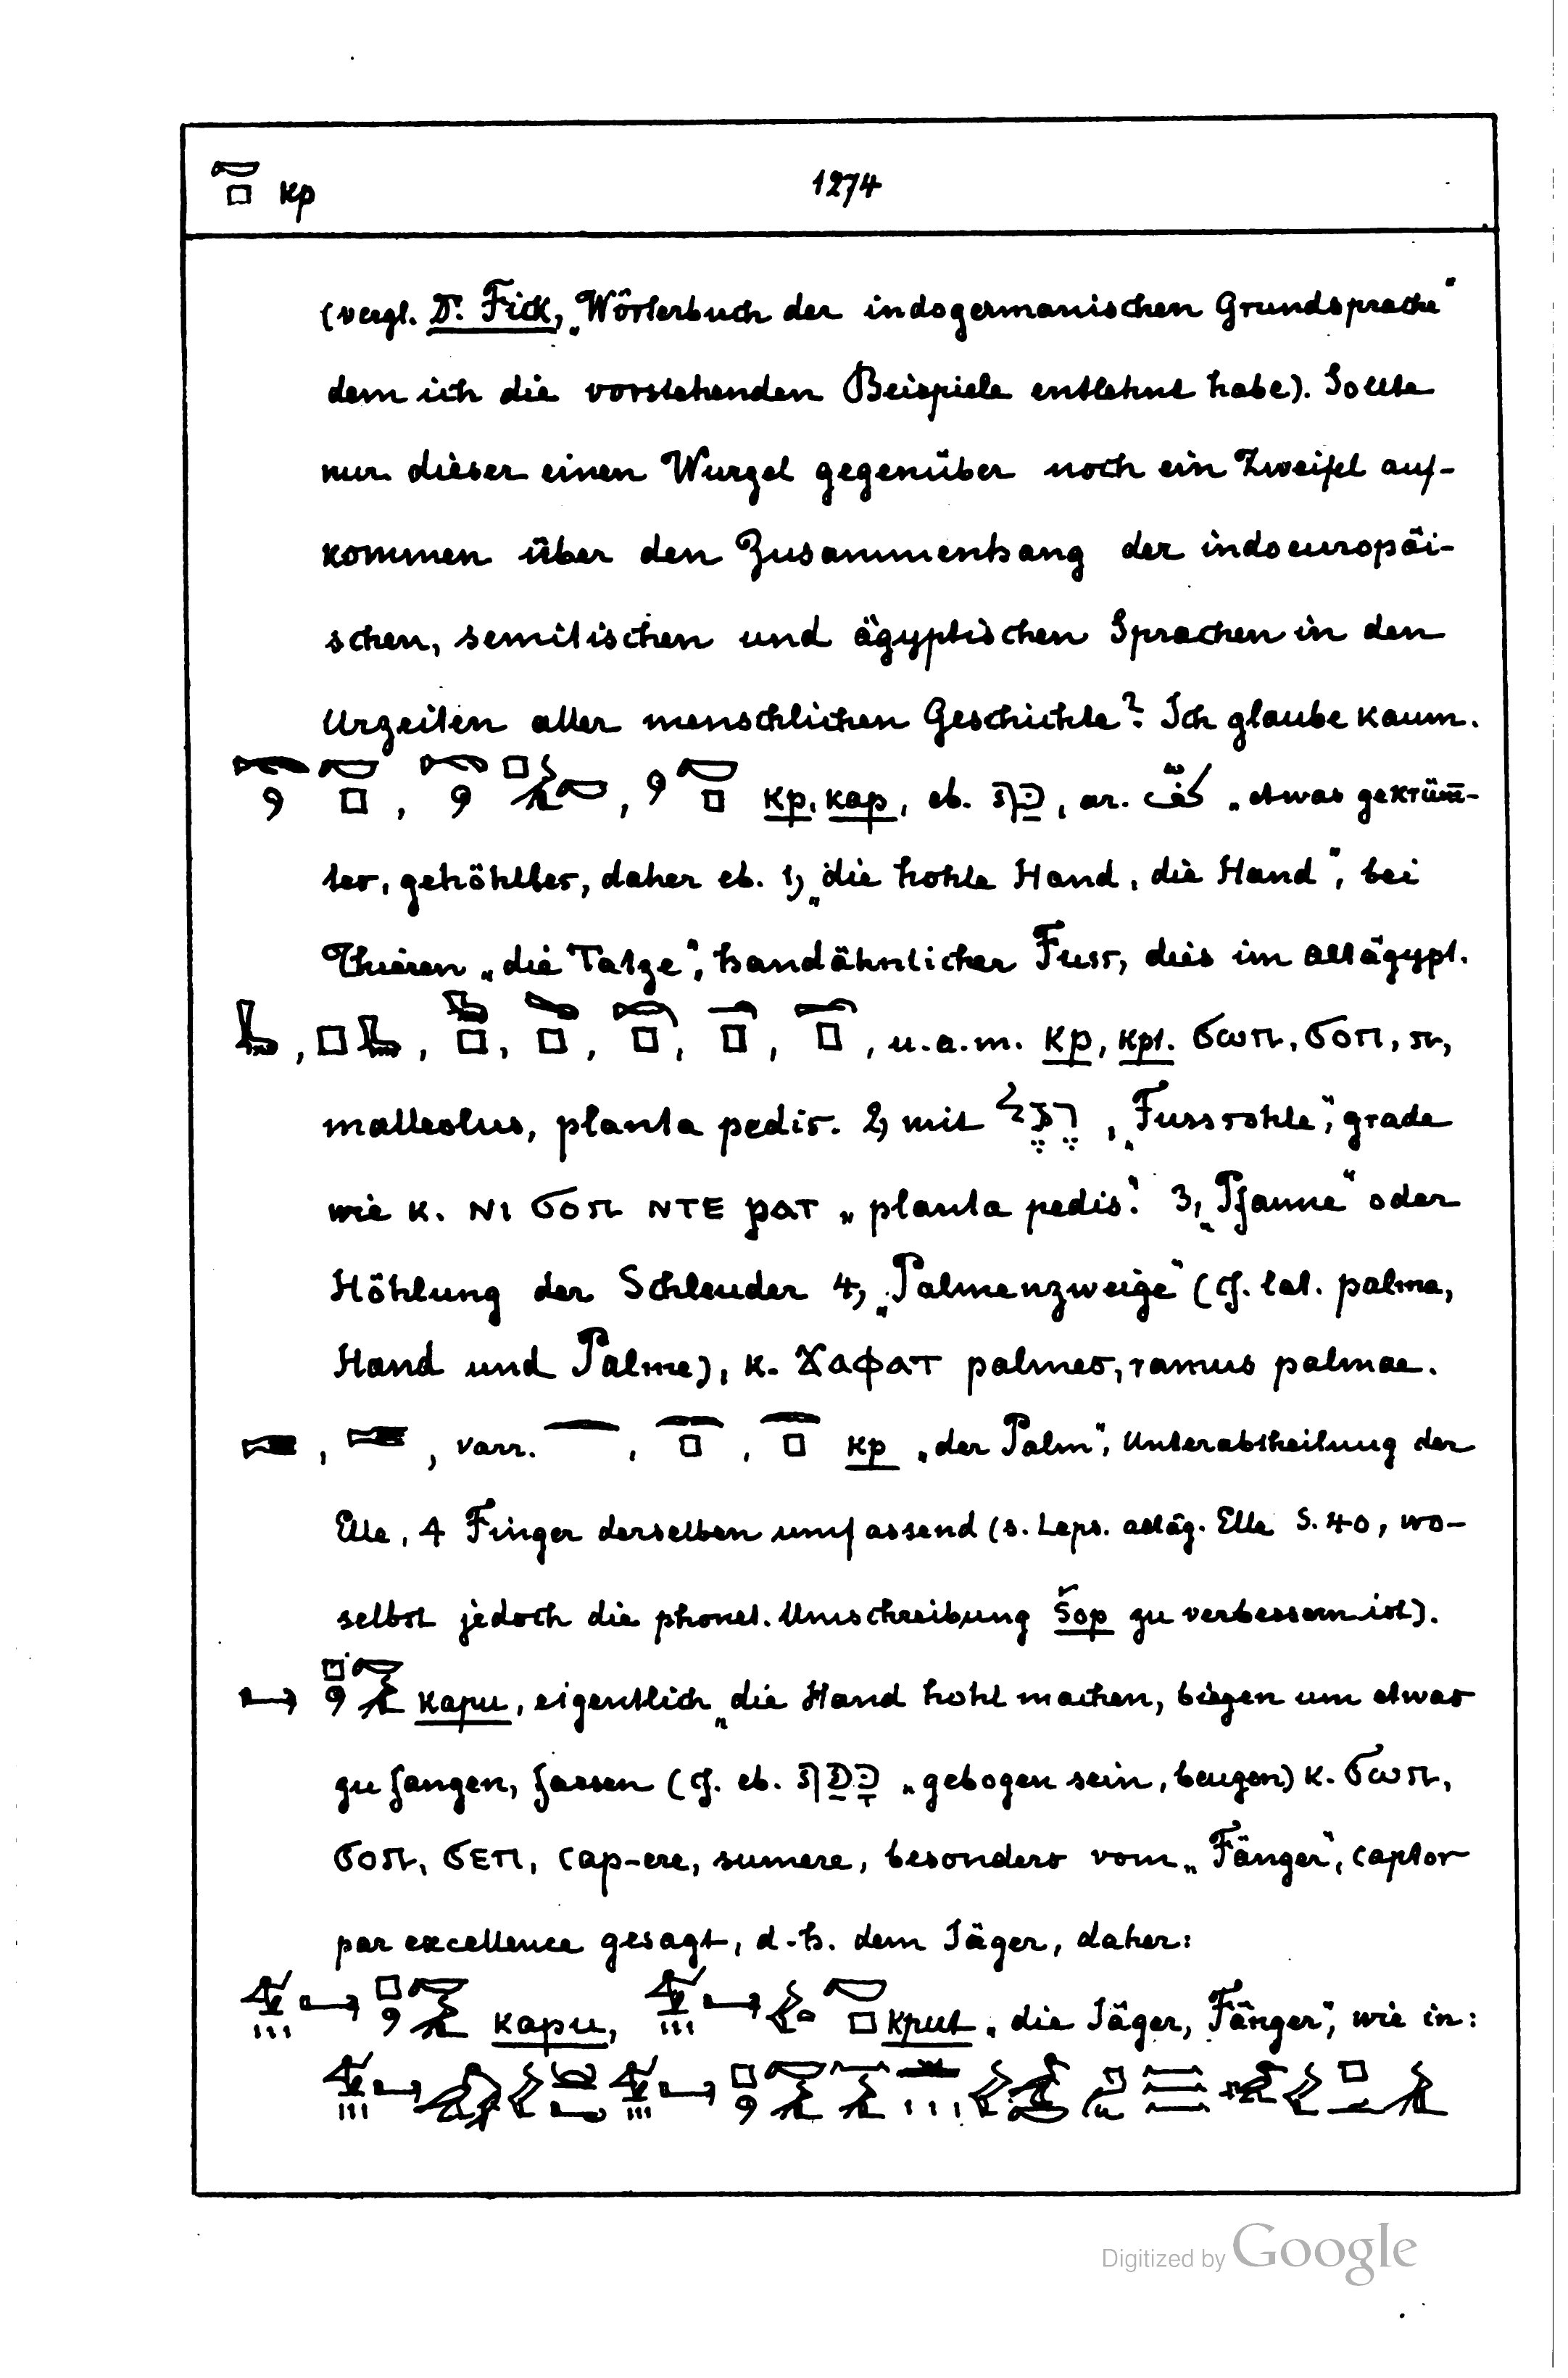 kp 1274
(vergl. Dr. Fick, „Wörterbuch der indogermanischen Grundsprache“
dem ich die vorstehenden Beispiele entlehnt habe). Sollte
nur dieser einen Wurzel gegenüber noch ein Zweifel auf-
kommen über den Zusammenhang der indoeuropäi-
schen, semitischen und ägyptischen Sprachen in den
Urzeiten aller menschlichen Geschichte? Ich glaube kaum.
, , kp, kap, eb. כַּף, ar. كفّ „etwas gekrüm̄-
tes, gehöhltes, daher eb. 1, „die hohle Hand, die Hand“, bei
Thieren „die Tatze“, handähnlicher Fuss, dies im altägypt.
, , , , , , , u.a.m. kp, kpt. ϭωⲡ, ϭⲟⲡ, ⲡ,
malleolus, planta pedis. 2, mit רֶגֶל, „Fusssohle“, grade
wie K. ⲛⲓ ϭⲟⲡ ⲛⲧⲉ ⲣⲁⲧ „planta pedis“. 3, „Pfanne“ oder
Höhlung der Schleuder 4, „Palmenzweige“ (cf. lat. palma,
Hand und Palme), K. ϫⲁⲫⲁⲧ palmes, ramus palmae.
, , varr. , , kp „der Palm“, Unterabtheilung der
Elle, 4 Finger derselben umfassend (s. Leps. altäg. Elle S. 40, wo-
selbst jedoch die phonet. Umschreibung šop zu verbessern ist).
kapu, eigentlich „die Hand hohl machen, biegen um etwas
zu fangen, fassen (cf. eb. כָּפַף „gebogen sein, beugen) K. ϭωⲡ,
ϭⲟⲡ, ϭⲉⲡ, cap-ere, sumere, besonders vom „Fänger“, captor
par excellence gesagt, d.h. dem Jäger, daher:
kapu, kput „die Jäger, Fänger“, wie in:
Digitized by Google